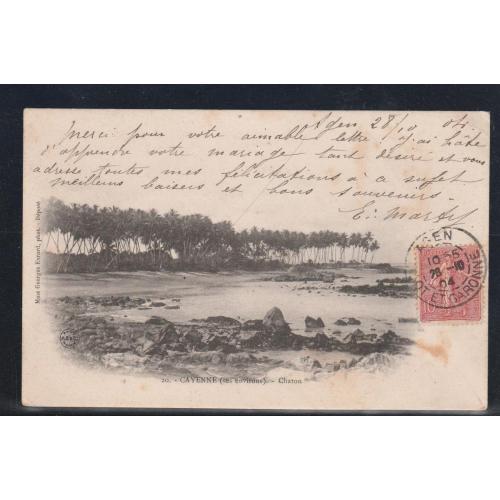 Agen 28/10 04.
Merci pour votre aimable lettre, j'ai hâte
d'apprendre votre mariage tant désiré et vous
adresse toutes mes félicitations à ce sujet
meilleurs baisers et bons souvenirs.
E. Martp
Mme Georges Evrard, phot. - Déposé
AGEN
10 55
28 - 10
04
LOT ET GARONNE
20. - CAYENNE (les environs). - Chaton